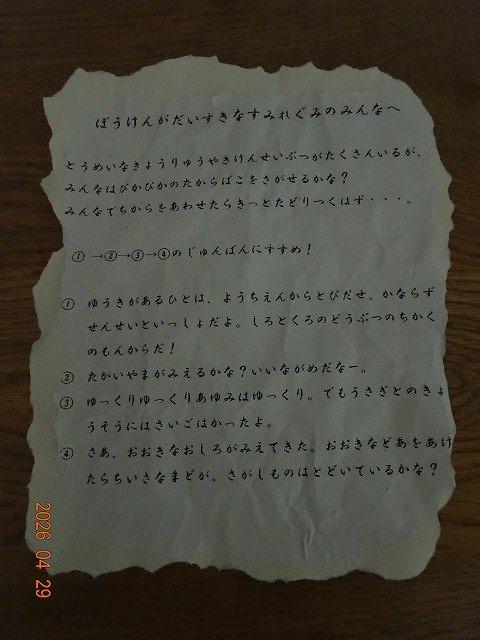 ぼうけんがだいすきなすみれぐみのみんなへ
とうめいなきょうりゅうやきけんせいぶつがたくさんいるが、
みんなはぴかぴかのたからばこをさがせるかな？
みんなでちからをあわせたらきっとたどりつくはず・・・。
①→②→③→④のじゅんばんにすすめ！
① ゆうきがあるひとは、ようちえんからとびだせ。かならず
せんせいといっしょだよ。しろとくろのどうぶつのちかく
のもんからだ！
② たかいやまがみえるかな？いいながめだなー。
③ ゆっくりゆっくりあゆみはゆっくり。でもうさぎとのきょ
うそうにはさいごはかったよ。
④ さあ、おおきなおしろがみえてきた。おおきなどあをあけ
たらちいさなまどが。さがしものはとどいているかな？
2026 04 29